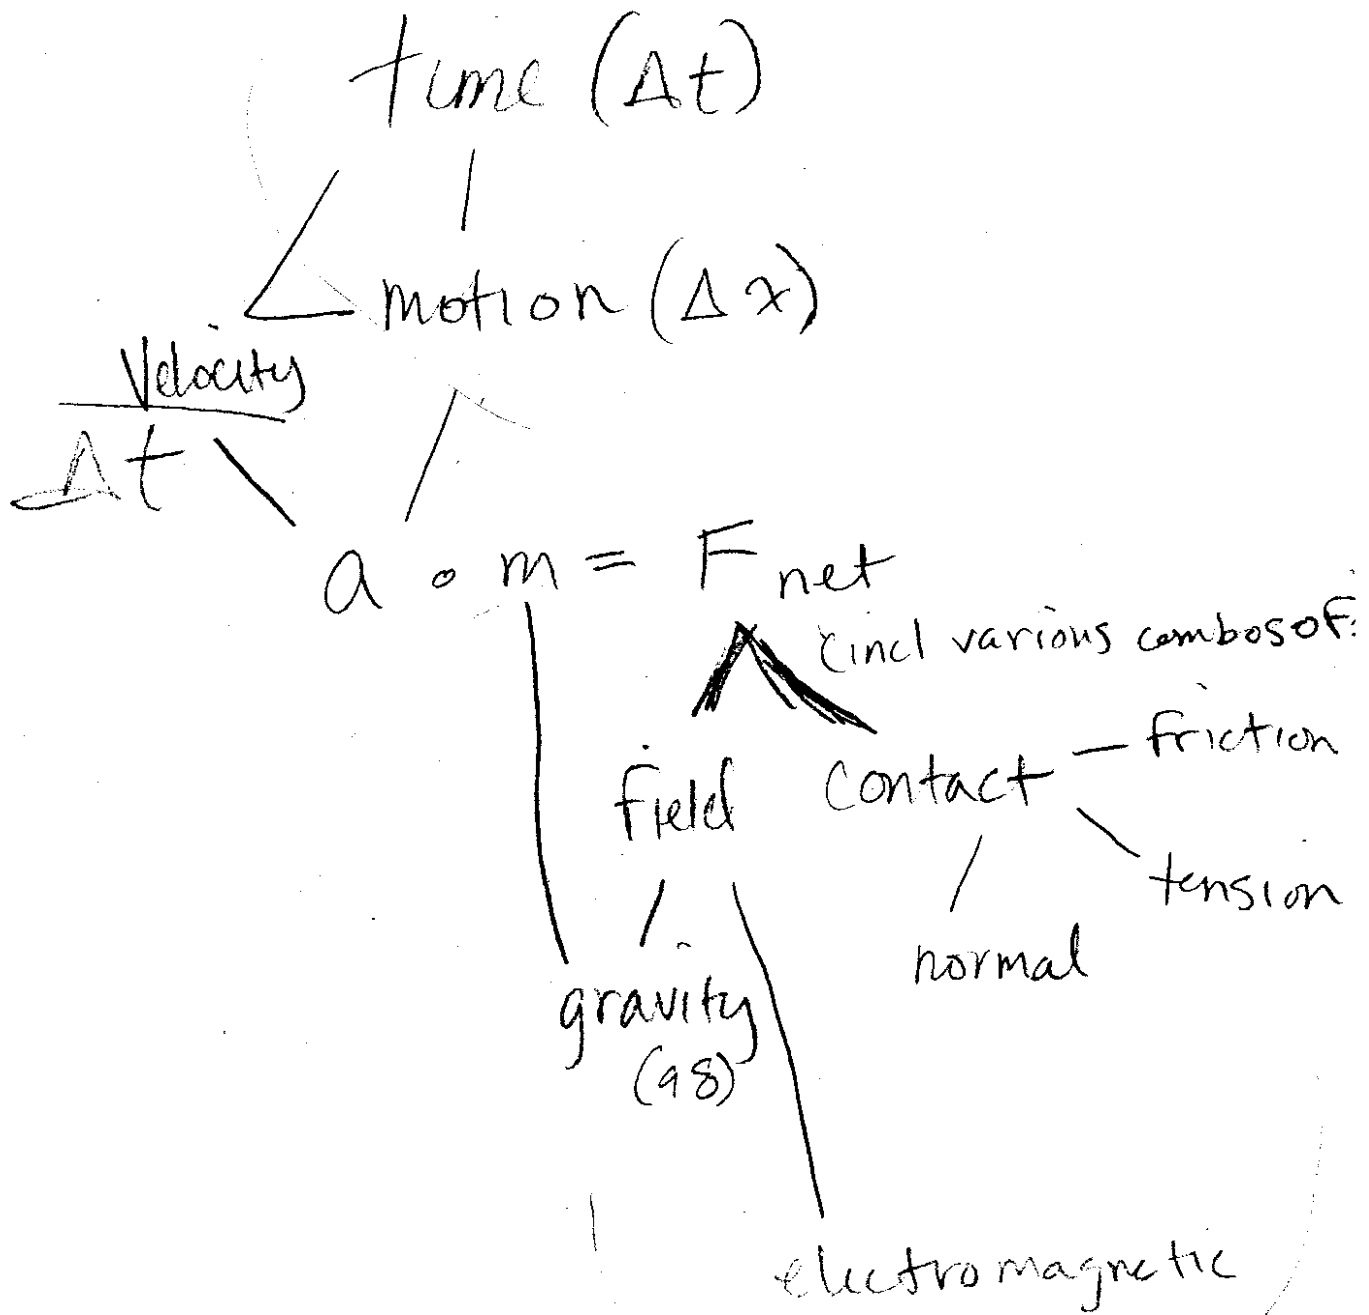 time (Δt)
motion (Δx)
Velocity
Δt
a • m = F net
(incl various combos of:
friction
field
contact
tension
normal
gravity
(98)
electromagnetic